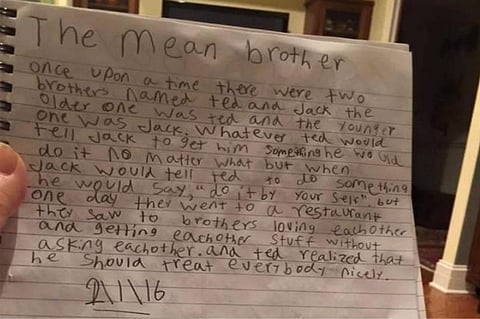 The mean brother
once upon a time there were two
brothers named ted and Jack the
older one was ted and the younger
one was Jack. Whatever ted would
tell Jack to get him something he would
do it no matter what but when
Jack would tell ted to do something
he would say, "do it by your self". but
one day they went to a restaurant
they saw to brothers loving eachother
and getting eachother stuff without
asking eachother. and ted realized that
he should treat everybody nicely.
2\1\16